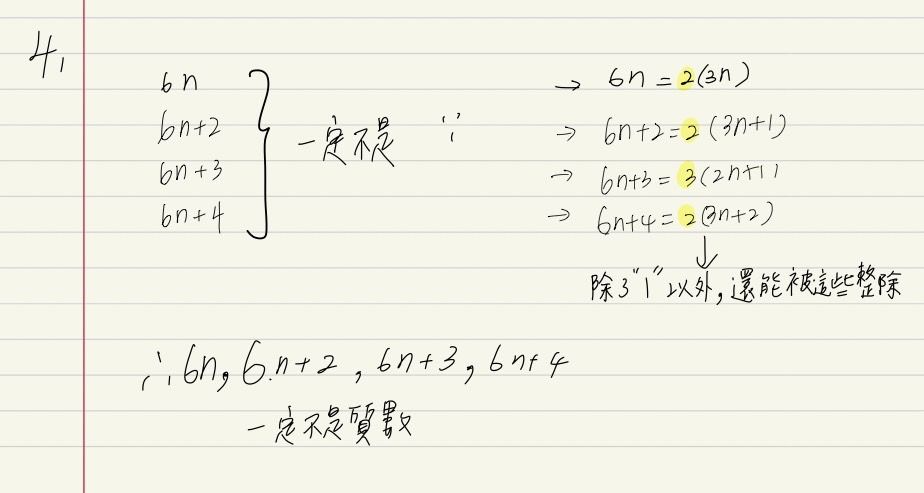 4,
6n → 6n = 2(3n)
6n+2 → 6n+2 = 2(3n+1)
一定不是 ∵
6n+3 → 6n+3 = 3(2n+1)
6n+4 → 6n+4 = 2(3n+2)
↓
除了"1"以外,還能被這些整除
∴ 6n, 6n+2, 6n+3, 6n+4
一定不是質數